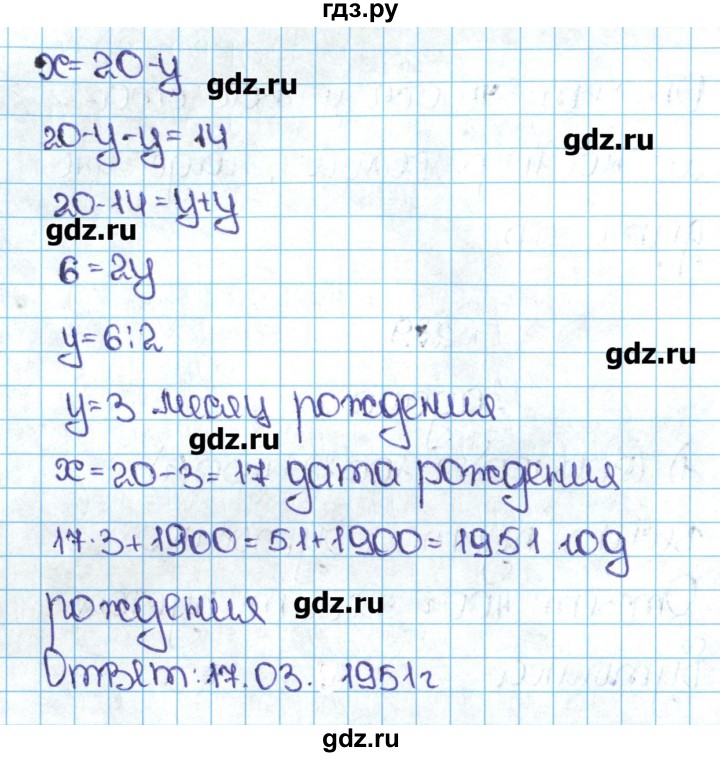 гдз.ру
x=20-y
gdz.ru
20-y-y=14
gdz.ru
20-14=y+y
gdz.ru
6=2y
y=6:2
gdz.ru
y=3 месяц рождения
gdz.ru
x=20-3=17 дата рождения
17·3+1900=51+1900=1951 год
рождения
gdz.ru
Ответ: 17.03. 1951г
gdz.ru